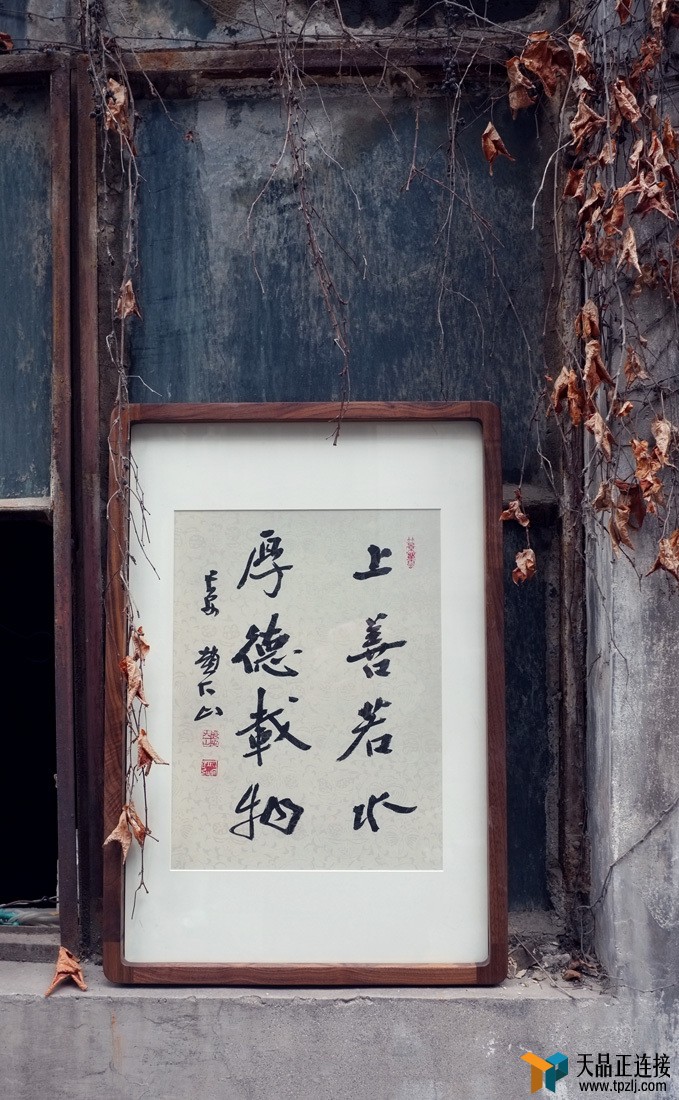 上善若水
厚德載物
長安 黄仁山
天品正连接
www.tpzlj.com